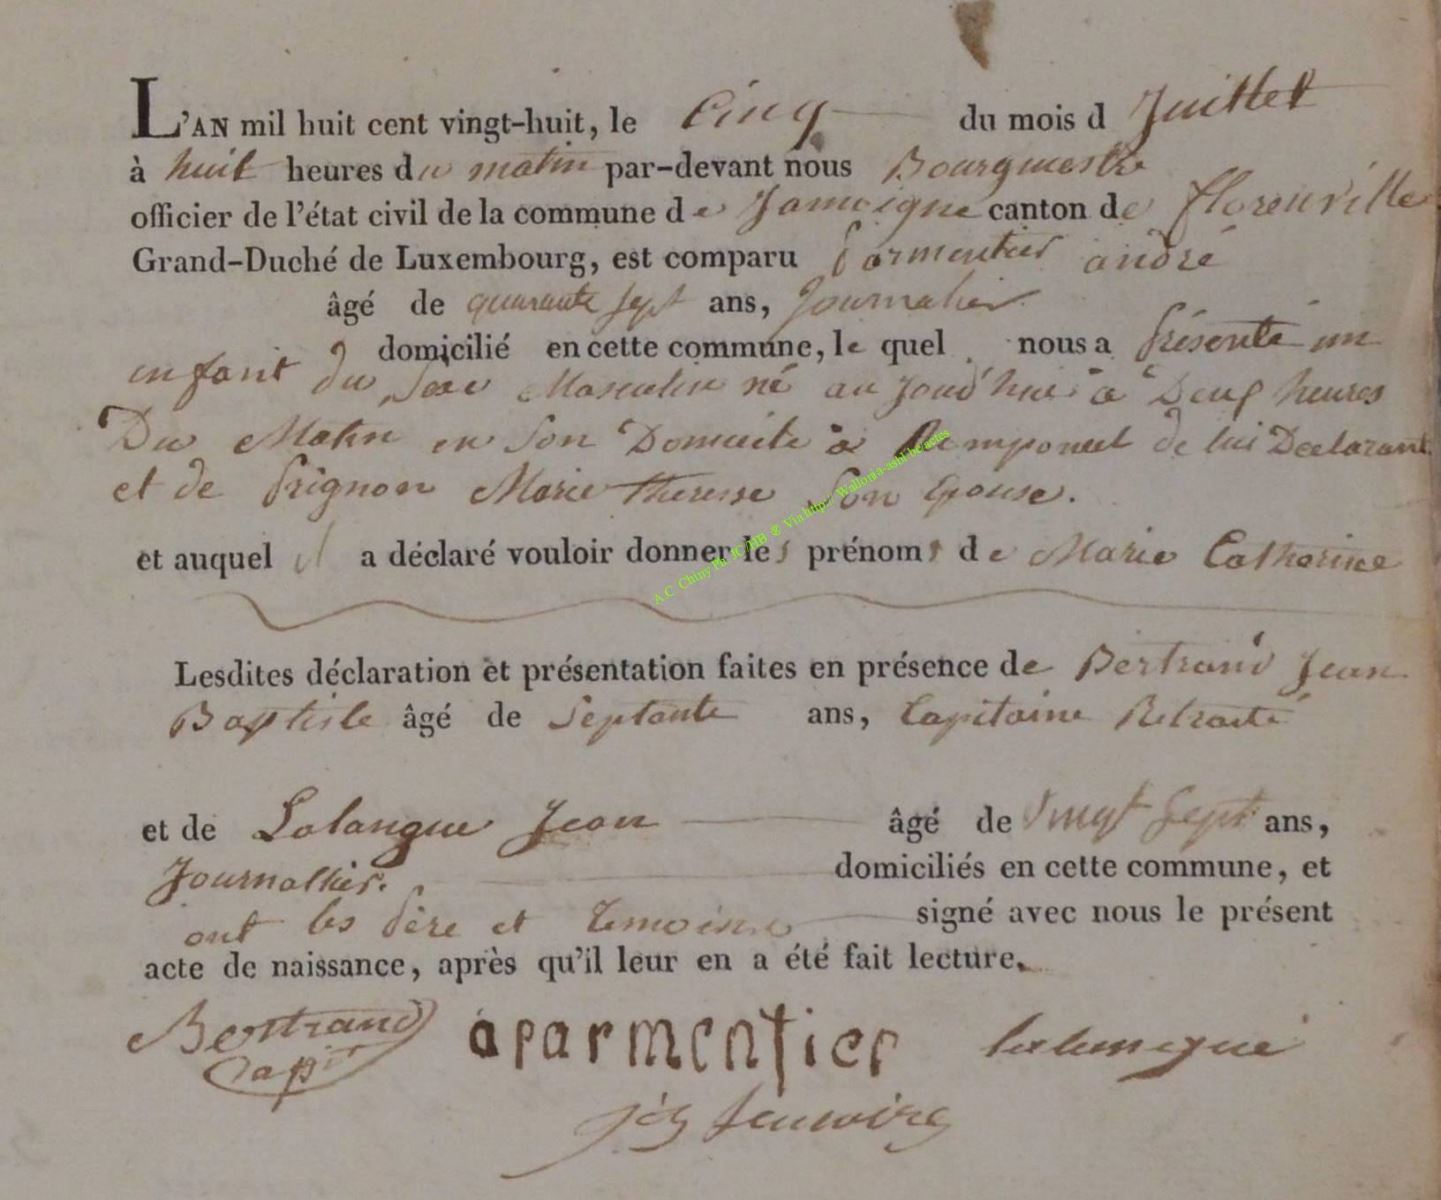 L'AN mil huit cent vingt-huit, le Cinq du mois d Juillet
à huit heures du matin par-devant nous Bourgmestre
officier de l'état civil de la commune de Jamoigne canton de florenville
Grand-Duché de Luxembourg, est comparu Parmentier andré
âgé de quarante sept ans, Journalier
domicilié en cette commune, le quel nous a Présenté un
enfant du Sexe Masculin né au Jourd'hui à Deux heures
Du Matin en Son Domicile à de lui Declarant
et de Prignon Marie therese Son Epouse.
et auquel il a déclaré vouloir donner les prénoms de Marie Catherine
Lesdites déclaration et présentation faites en présence de Bertrand Jean
Baptiste âgé de Septante ans, Capitaine Retraité
et de Lalangue Jean âgé de Vingt Sept ans,
Journallier. domiciliés en cette commune, et
ont les Père et Temoins signé avec nous le présent
acte de naissance, après qu'il leur en a été fait lecture.
Bertrand aparmentier lalangue
Capit
A.C Chiny Ph JC/MB & Via http:// Wallonia-asbl.be/actes